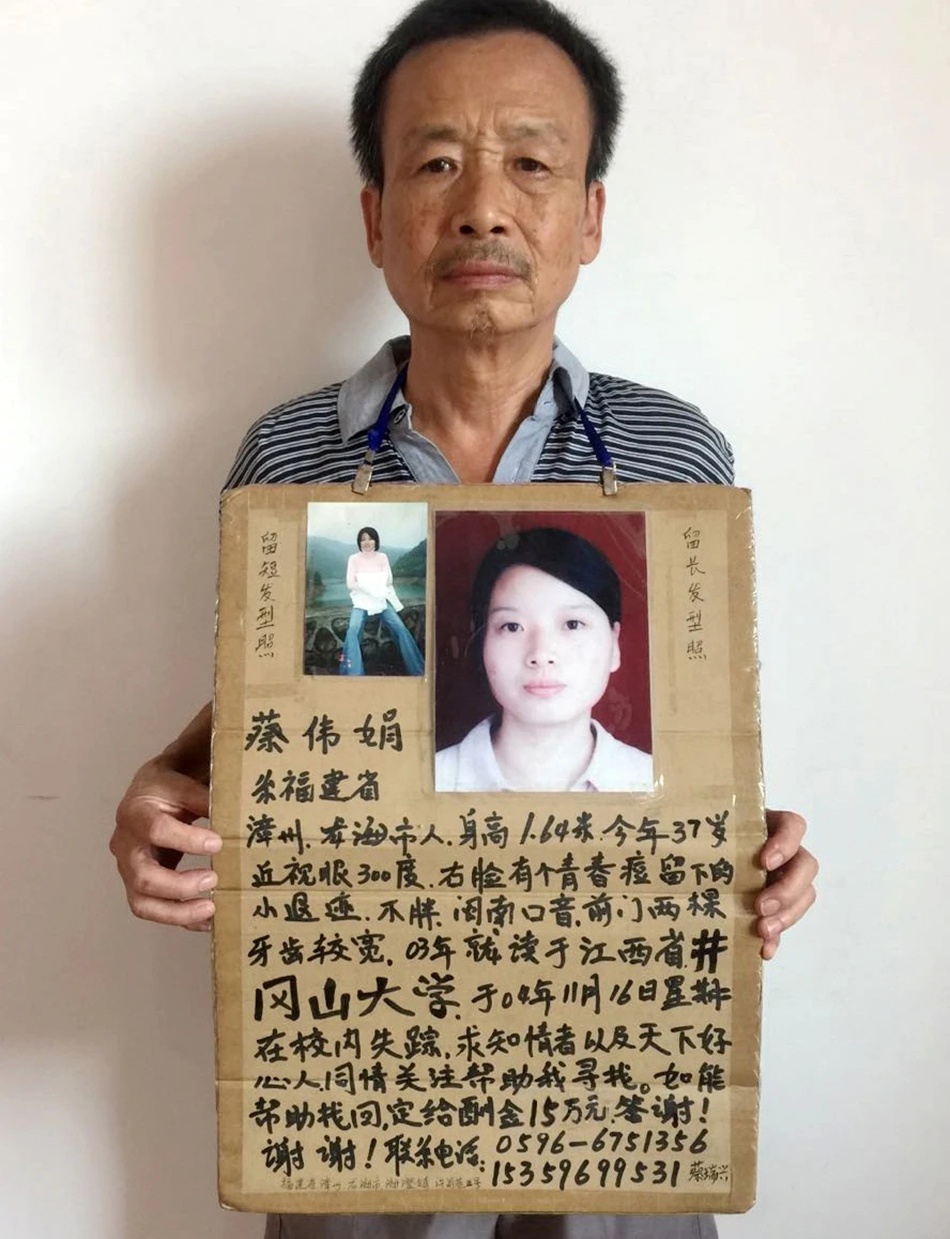 留短发型照
留长发型照
蔡伟娟
系福建省
漳州.龙海市人.身高1.64米.今年37岁
近视眼300度.右脸有个青春痘留下的
小退迹.不胖.闽南口音.前门两棵
牙齿较宽.03年就读于江西省井
冈山大学.于04年11月16日星期
在校内失踪.求知情者以及天下好
心人.同情关注帮助我寻找。如能
帮助找回,定给酬金15万元.答谢!
谢谢!联系电话:0596-6751356
15359699531 蔡瑞兴
福建省漳州.龙海市